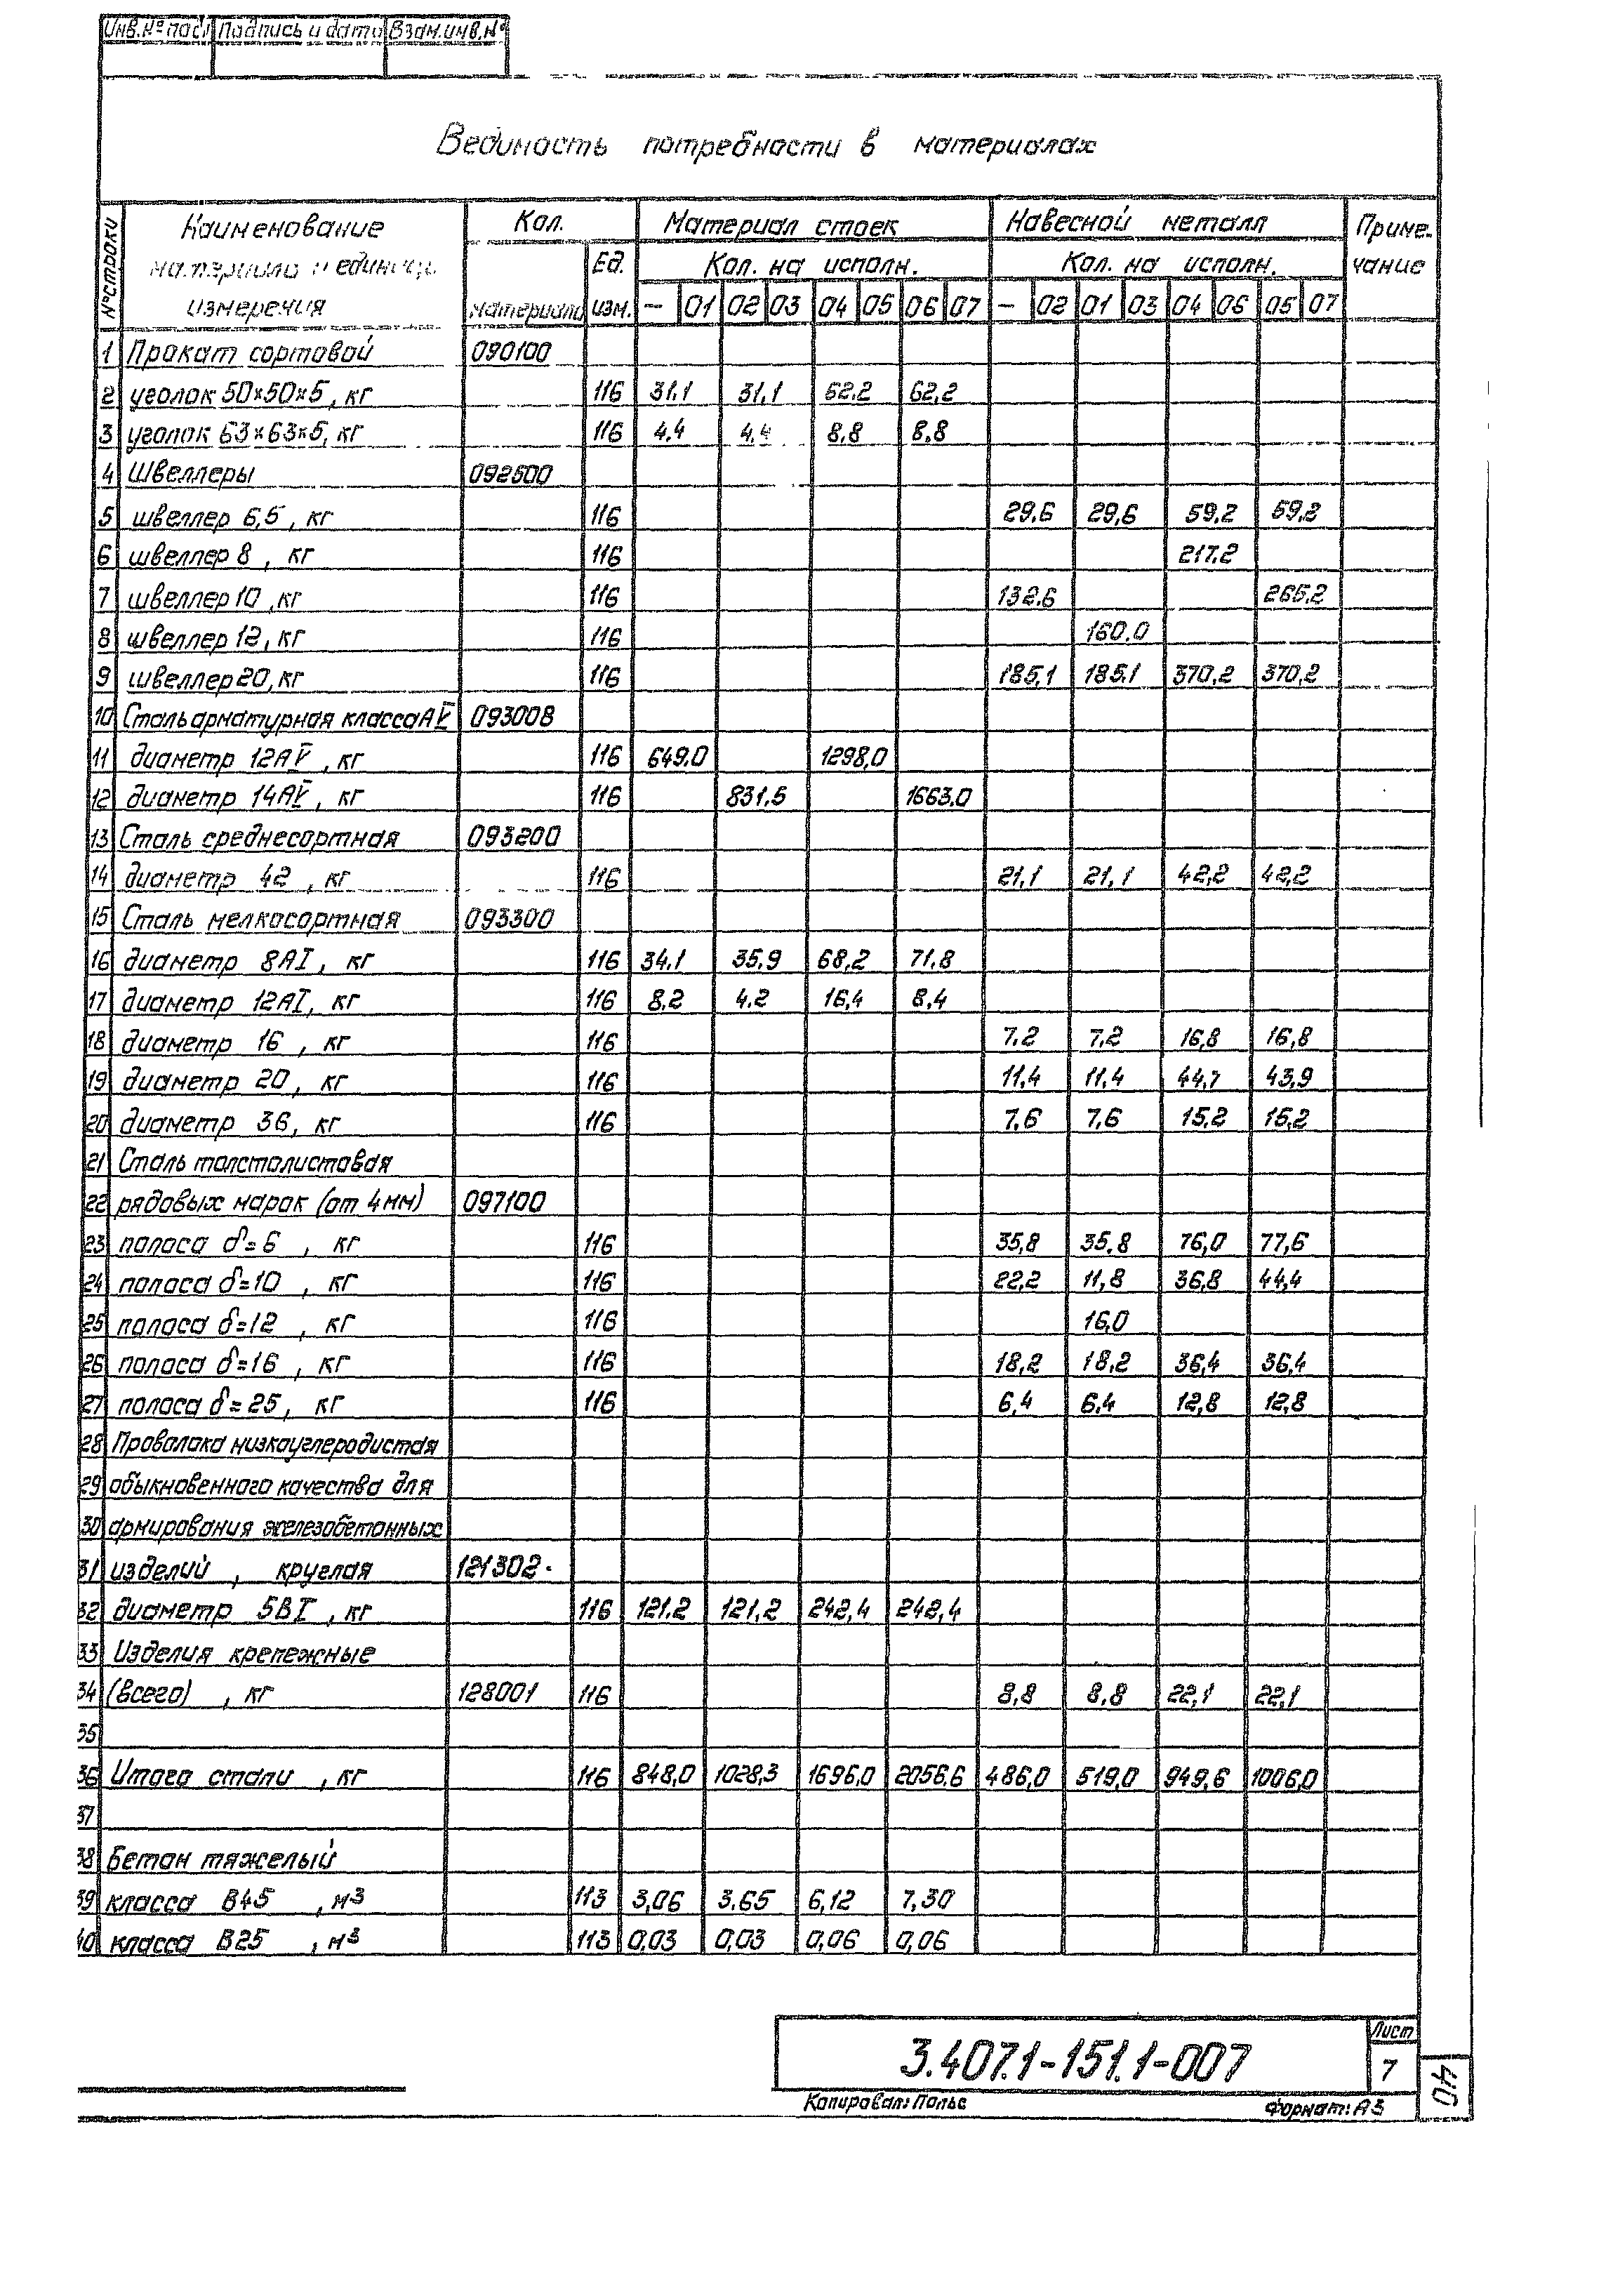 Инв.№ подл Подпись и дата Взам.инв.№
Ведомость потребности в материалах
№ строки Наименование материала и единица измерения Кол. материала Ед. изм. Материал стоек Навесной металл Примечание
Кол. на исполн. Кол. на исполн.
— 01 02 03 04 05 06 07 — 02 01 03 04 06 05 07
1 Прокат сортовой 090100
2 уголок 50×50×5, кг 116 31.1 31,1 62.2 62,2
3 уголок 63×63×5, кг 116 4.4 4,4 8,8 8,8
4 Швеллеры 092500
5 швеллер 6,5, кг 116 29.6 29,6 59,2 59,2
6 швеллер 8, кг 116 217.2
7 швеллер 10, кг 116 132.6 265,2
8 швеллер 12, кг 116 160.0
9 швеллер 20, кг 116 185,1 185.1 370,2 370,2
10 Сталь арматурная класса АV 093008
11 диаметр 12АV, кг 116 649.0 1298,0
12 диаметр 14АV, кг 116 831.5 1663.0
13 Сталь среднесортная 093200
14 диаметр 42, кг 116 21,1 21,1 42,2 42,2
15 Сталь мелкосортная 093300
16 диаметр 8АI, кг 116 34.1 35,9 68,2 71.8
17 диаметр 12АI, кг 116 8.2 4.2 16,4 8,4
18 диаметр 16, кг 116 7.2 7,2 16,8 16,8
19 диаметр 20, кг 116 11,4 11,4 44,7 43,9
20 диаметр 36, кг 116 7,6 7,6 15,2 15,2
21 Сталь толстолистовая
22 рядовых марок (от 4мм) 097100
23 полоса δ=6, кг 116 35,8 35.8 76,0 77,6
24 полоса δ=10, кг 116 22,2 11,8 36,8 44,4
25 полоса δ=12, кг 116 16,0
26 полоса δ=16, кг 116 18,2 18,2 36,4 36,4
27 полоса δ=25, кг 116 6,4 6.4 12,8 12,8
28 Проволока низкоуглеродистая
29 обыкновенного качества для
30 армирования железобетонных
31 изделий, круглая 121302
32 диаметр 5ВI, кг 116 121.2 121,2 242,4 242,4
33 Изделия крепежные
34 (всего), кг 128001 116 8,8 8,8 22,1 22,1
35
36 Итого стали, кг 116 848,0 1028,3 1696,0 2056,6 486,0 519,0 949,6 1006,0
37
38 Бетон тяжелый
39 класса В45, м³ 113 3,06 3.65 6,12 7,30
40 класса В25, м³ 113 0,03 0,03 0,06 0,06
3.407.1-151.1-007
Лист
7
40
Копировал: Полье
Формат: А3